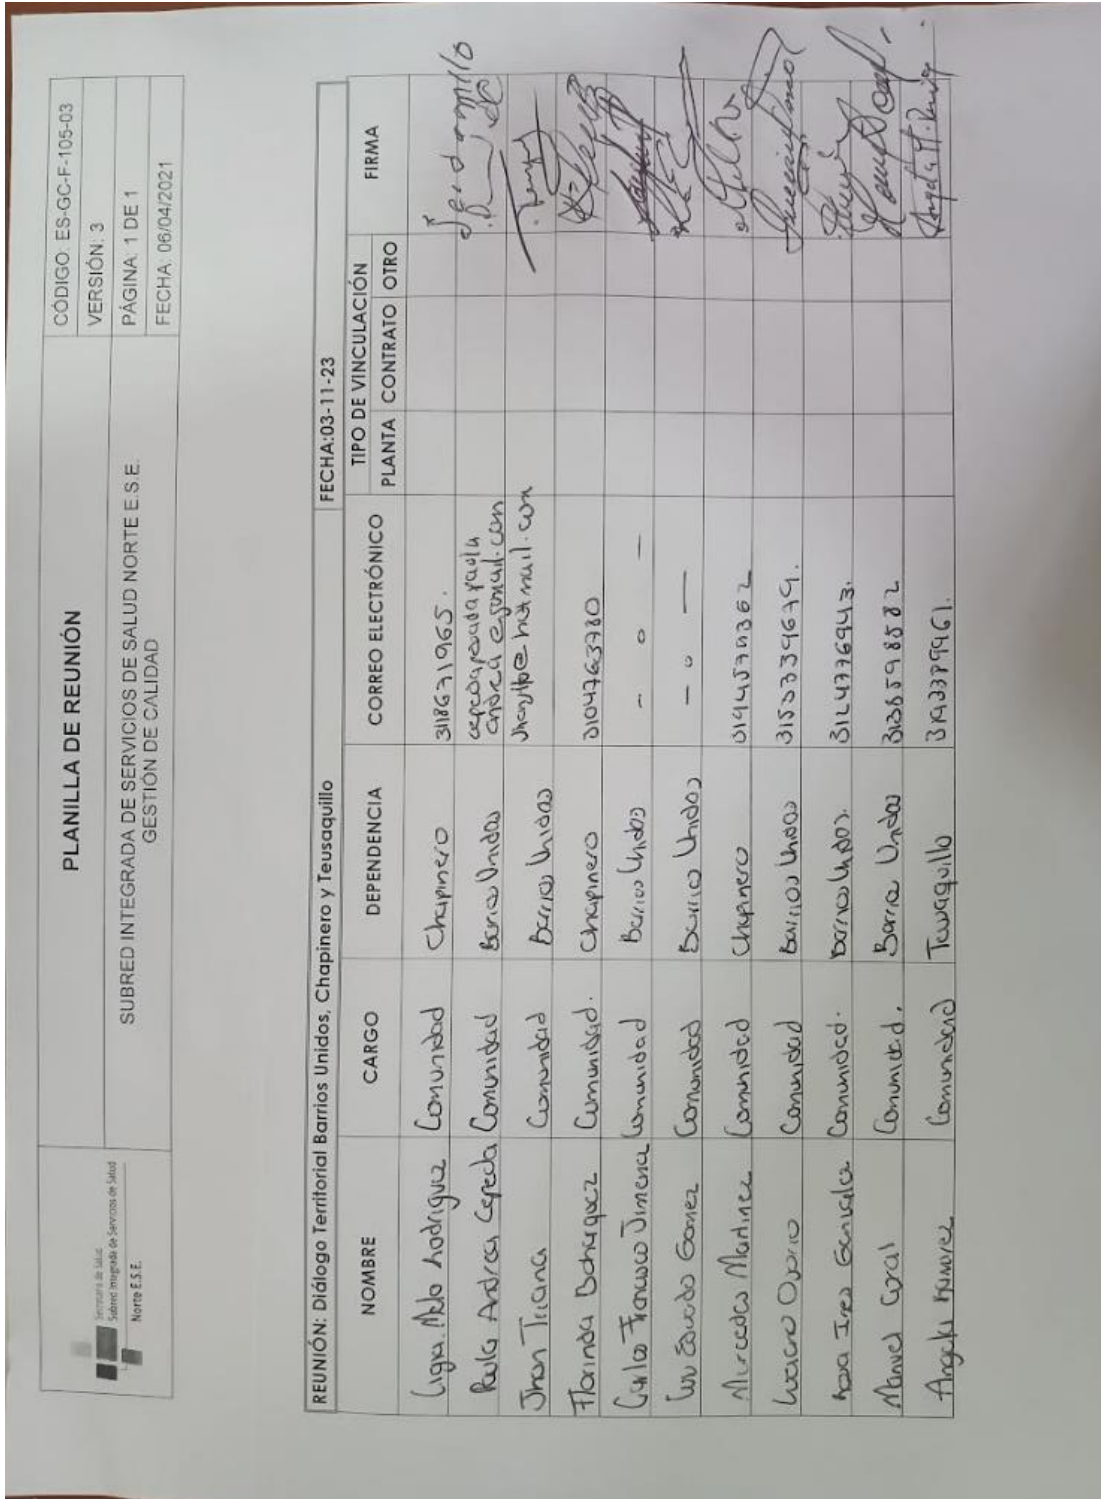 Secretaría de Salud
Subred Integrada de Servicios de Salud
Norte E.S.E.
PLANILLA DE REUNIÓN
SUBRED INTEGRADA DE SERVICIOS DE SALUD NORTE E.S.E.
GESTIÓN DE CALIDAD
CÓDIGO: ES-GC-F-105-03
VERSIÓN: 3
PÁGINA: 1 DE 1
FECHA: 06/04/2021
REUNIÓN: Diálogo Territorial Barrios Unidos, Chapinero y Teusaquillo FECHA:03-11-23
NOMBRE CARGO DEPENDENCIA CORREO ELECTRÓNICO TIPO DE VINCULACIÓN FIRMA
PLANTA CONTRATO OTRO
Ligia Melo Rodriguez Comunidad Chapinero 3118671965.
Paula Andrea Cepeda Comunidad Barrios Unidos
Jhon Triana Comunidad Barrios Unidos
Florinda Bohorquez Comunidad. Chapinero 3104763780
Carlos Francisco Jimenez Comunidad Barrios Unidos - o -
Luis Eduardo Gomez Comunidad Barrios Unidos - o -
Mercedes Martinez Comunidad Chapinero
Comunidad Barrios Unidos 3153339679.
Rosa Ines Gonzalez Comunidad. Barrios Unidos. 3124776943.
Manuel Coral Comunidad. Barrios Unidos
Angela Ramirez Comunidad Teusaquillo